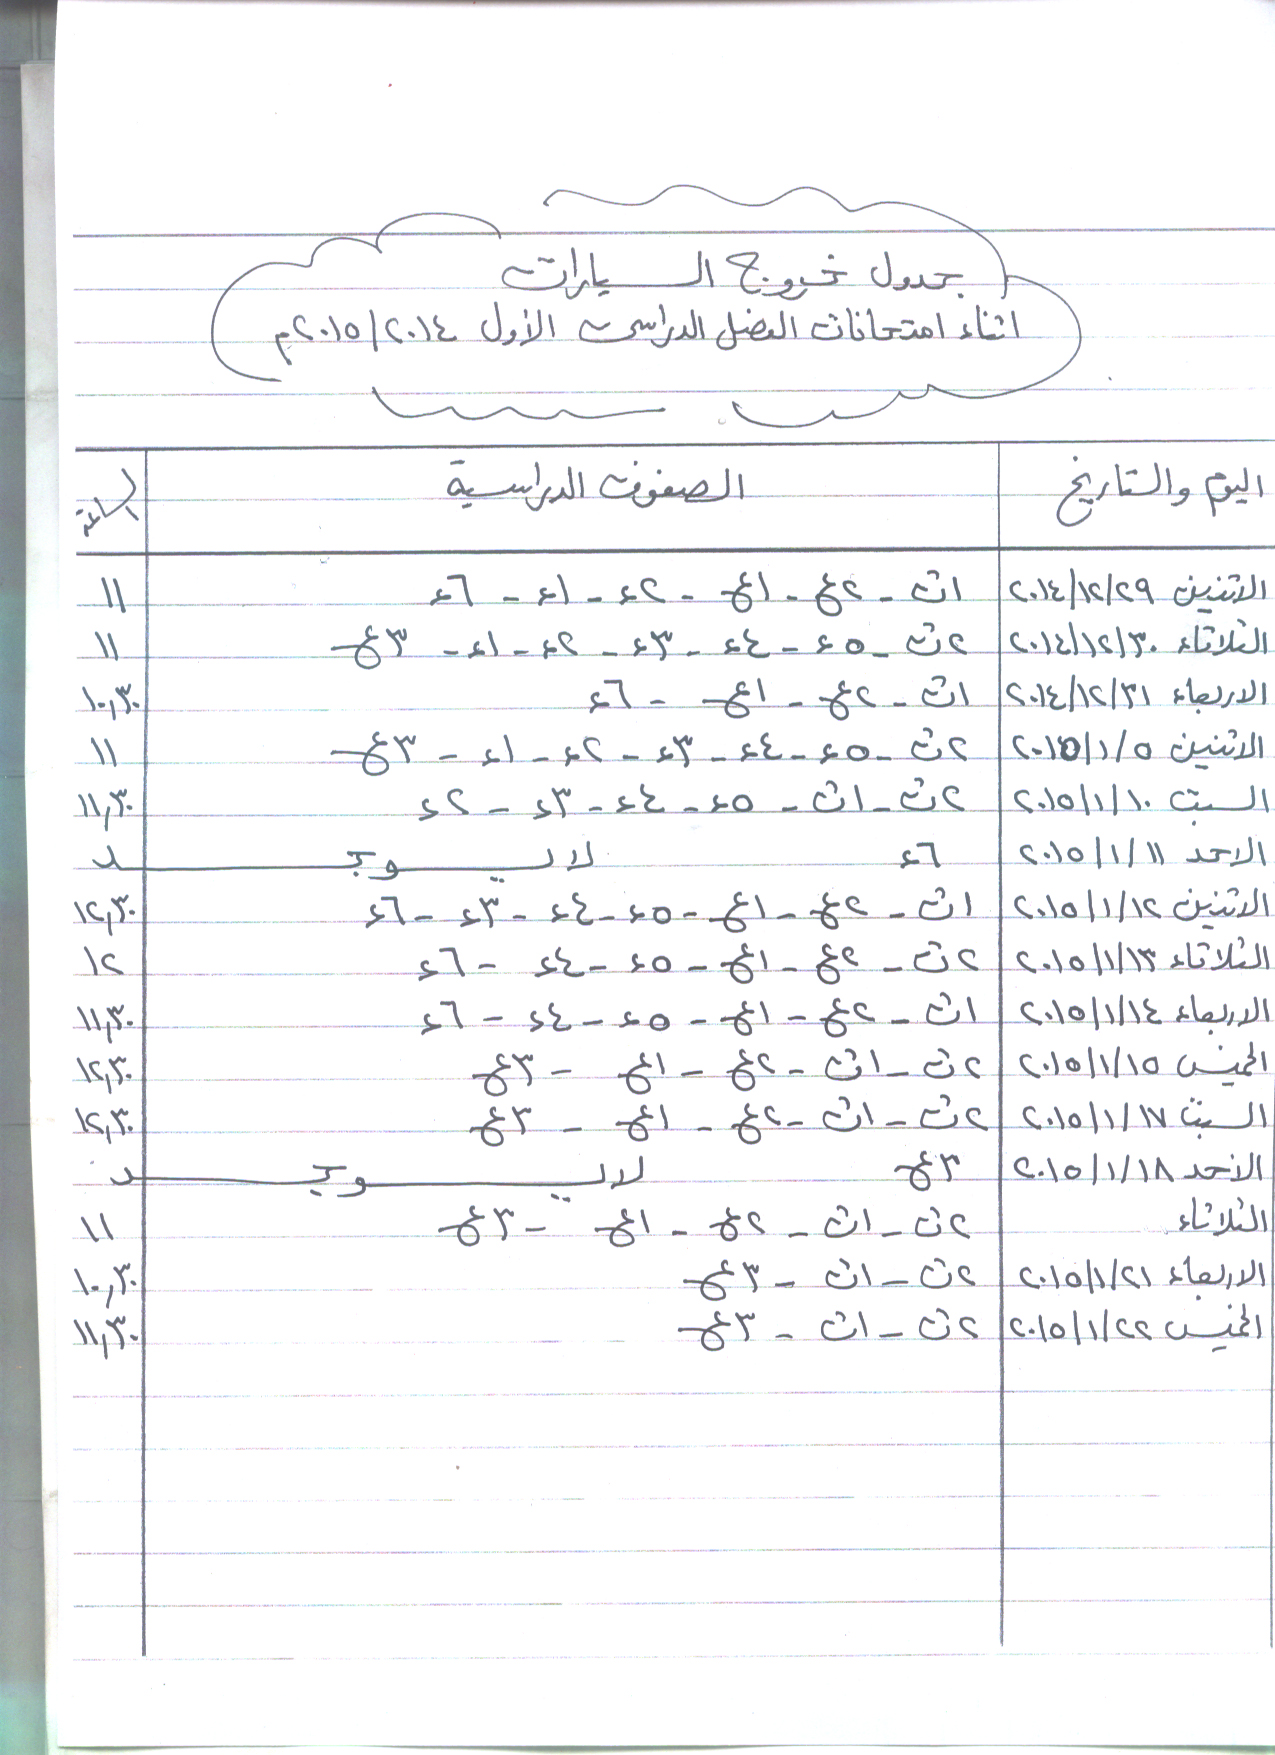 جدول خروج السيارات
اثناء امتحانات الفصل الدراسى الأول ٢٠١٥/٢٠١٤م
اليوم والتاريخ الصفوف الدراسية الساعة
الاثنين ٢٠١٤/١٢/٢٩ ١ث - ٢ع - ١ع - ٢ء - ١ء - ٦ء ١١
الثلاثاء ٢٠١٤/١٢/٣٠ ٢ث - ٥ء - ٤ء - ٣ء - ٢ء - ١ء - ٣ع ١١
الاربعاء ٢٠١٤/١٢/٣١ ١ث - ٢ع - ١ع - ٦ء ١٠,٣٠
الاثنين ٢٠١٥/١/٥ ٢ث - ٥ء - ٤ء - ٣ء - ٢ء - ١ء - ٣ع ١١
السبت ٢٠١٥/١/١٠ ٢ث - ١ث - ٥ء - ٤ء - ٣ء - ٢ء ١١,٣٠
الاحد ٢٠١٥/١/١١ ٦ء لا يوجد
الاثنين ٢٠١٥/١/١٢ ١ث - ٢ع - ١ع - ٥ء - ٤ء - ٣ء - ٦ء ١٢,٣٠
الثلاثاء ٢٠١٥/١/١٣ ٢ث - ٢ع - ١ع - ٥ء - ٤ء - ٦ء ١٢
الاربعاء ٢٠١٥/١/١٤ ١ث - ٢ع - ١ع - ٥ء - ٤ء - ٦ء ١١,٣٠
الخميس ٢٠١٥/١/١٥ ٢ث - ١ث - ٢ع - ١ع - ٣ع ١٢,٣٠
السبت ٢٠١٥/١/١٧ ٢ث - ١ث - ٢ع - ١ع - ٣ع ١٢,٣٠
الاحد ٢٠١٥/١/١٨ ٣ع لا يوجد
الثلاثاء ٢ث - ١ث - ٢ع - ١ع - ٣ع ١١
الاربعاء ٢٠١٥/١/٢١ ٢ث - ١ث - ٣ع ١٠,٣٠
الخميس ٢٠١٥/١/٢٢ ٢ث - ١ث - ٣ع ١١,٣٠